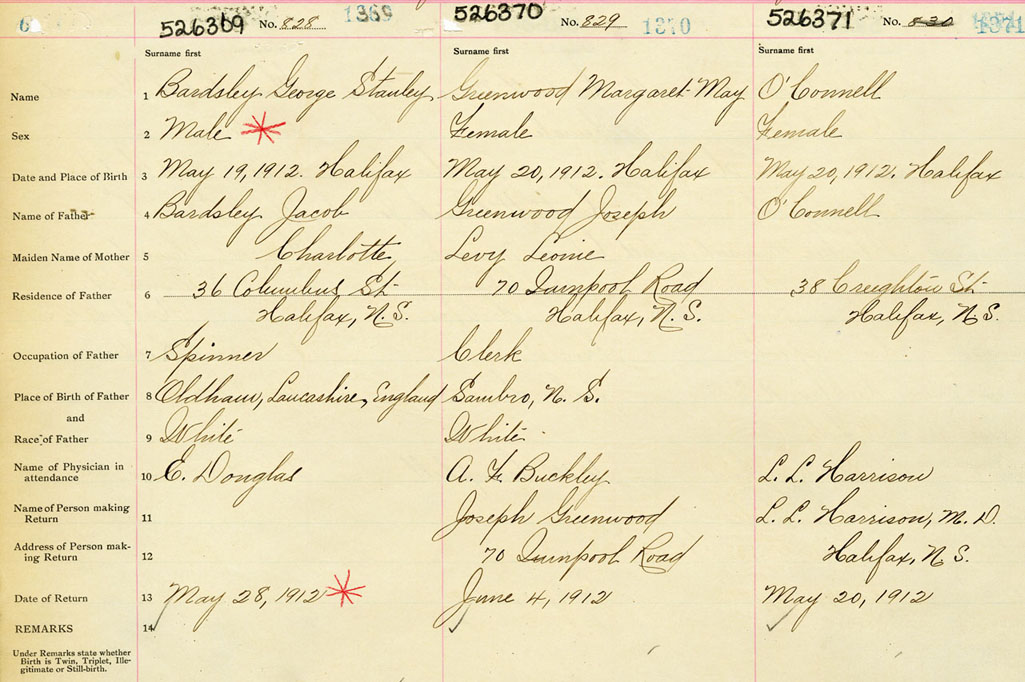 6 526369 No. 828 1369 526370 No. 829 1370 526371 No. 830 1371
Surname first Surname first Surname first
Name 1 Bardsley George Stanley Greenwood Margaret May O'Connell
Sex 2 Male Female Female
Date and Place of Birth 3 May 19, 1912. Halifax May 20, 1912. Halifax May 20, 1912. Halifax
Name of Father 4 Bardsley Jacob Greenwood Joseph O'Connell
Maiden Name of Mother 5 Charlotte Levy Leonie
Residence of Father 6 36 Columbus St. 70 Quinpool Road 38 Creighton St.
Halifax, N.S. Halifax, N.S. Halifax, N.S.
Occupation of Father 7 Spinner Clerk
Place of Birth of Father 8 Oldham, Lancashire, England Sambro, N.S.
and
Race of Father 9 White White
Name of Physician in
attendance 10 E. Douglas A. F. Buckley L. L. Harrison
Name of Person making
Return 11 Joseph Greenwood L. L. Harrison, M.D.
Address of Person mak-
ing Return 12 70 Quinpool Road Halifax, N.S.
Date of Return 13 May 28, 1912 June 4, 1912 May 20, 1912
REMARKS 14
Under Remarks state whether
Birth is Twin, Triplet, Ille-
gitimate or Still-birth.